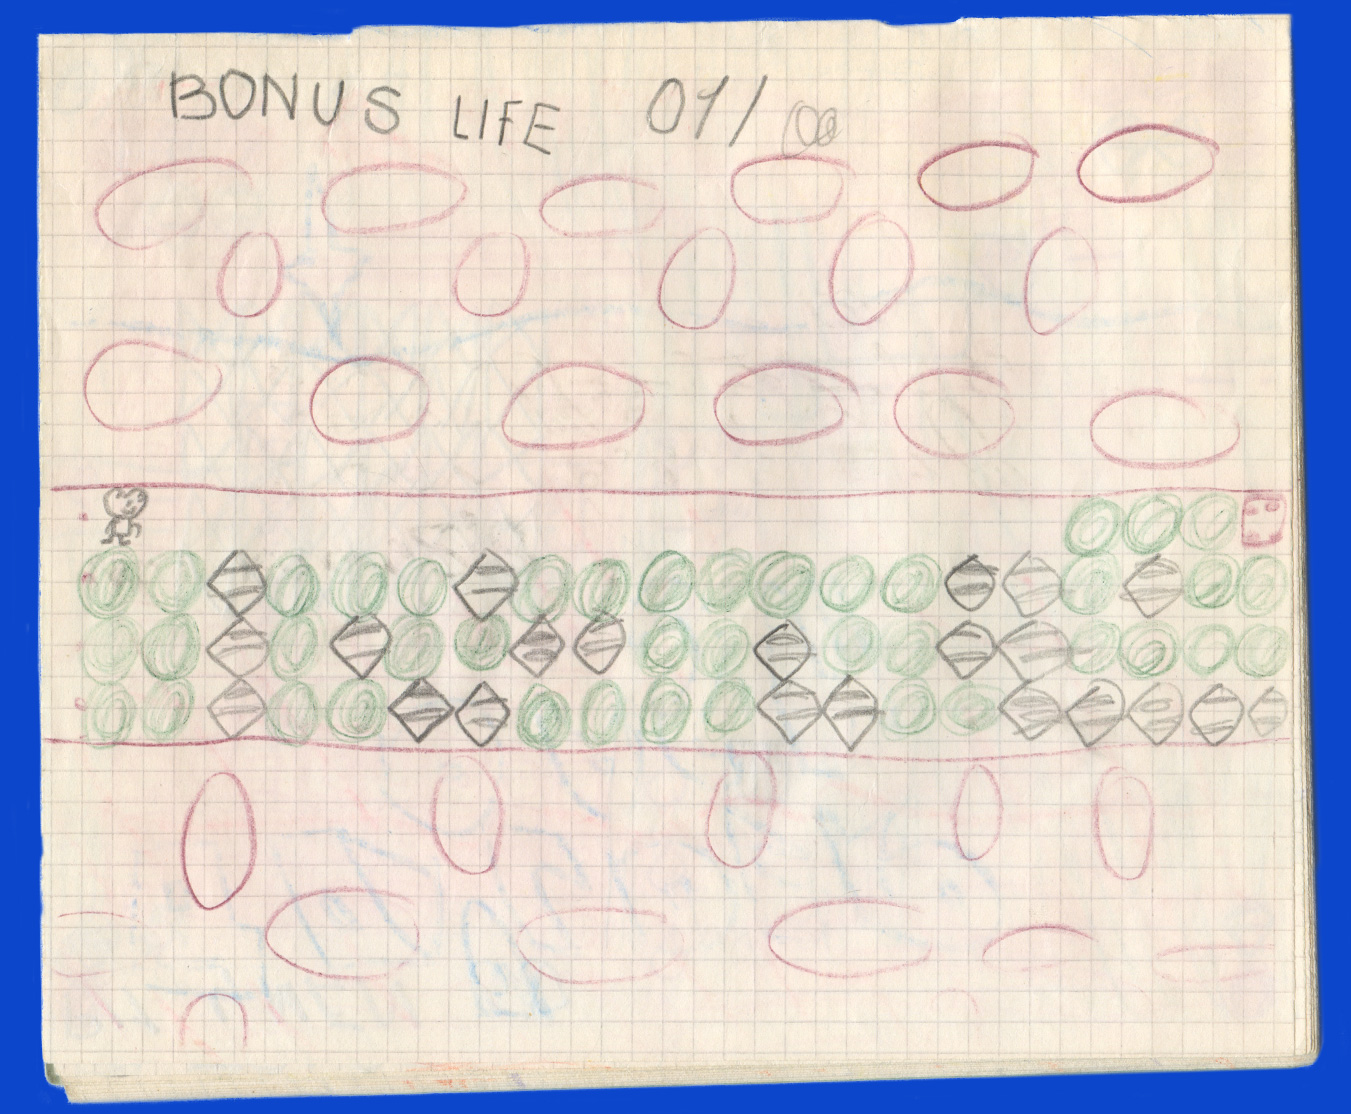 BONUS LIFE 01/00